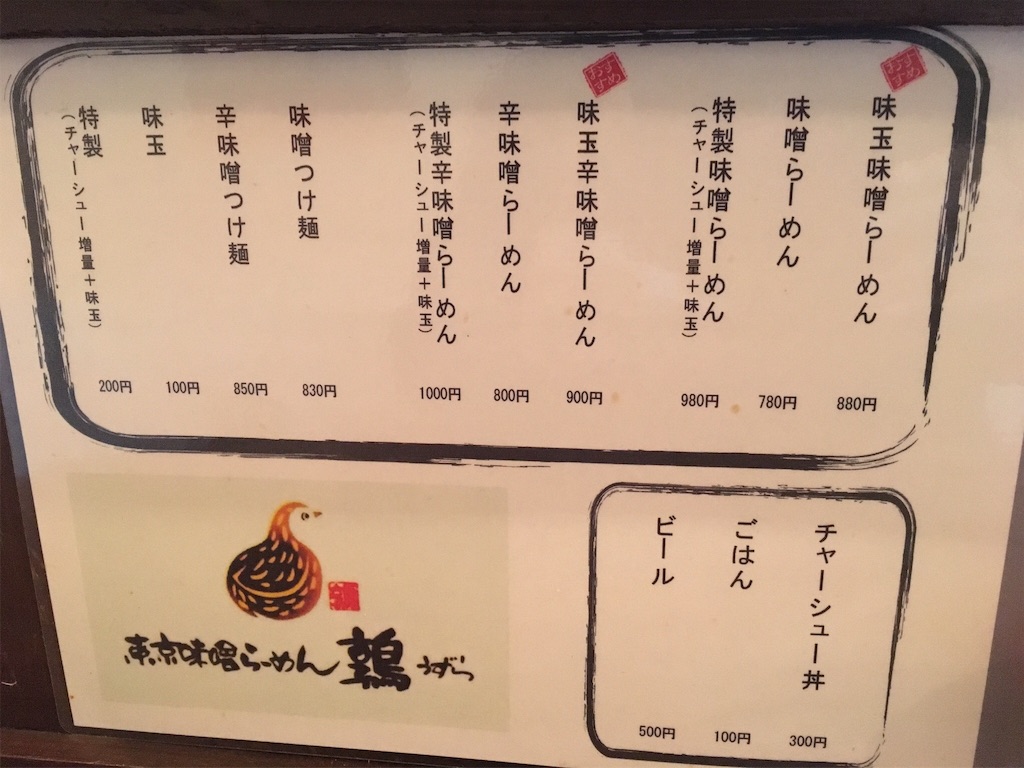 おすすめ
味玉味噌らーめん
880円
味噌らーめん
780円
特製味噌らーめん
（チャーシュー増量＋味玉）
980円
おすすめ
味玉辛味噌らーめん
900円
辛味噌らーめん
800円
特製辛味噌らーめん
（チャーシュー増量＋味玉）
1000円
味噌つけ麺
830円
辛味噌つけ麺
850円
味玉
100円
特製
（チャーシュー増量＋味玉）
200円
チャーシュー丼
300円
ごはん
100円
ビール
500円
東京味噌らーめん 鶉 うずら